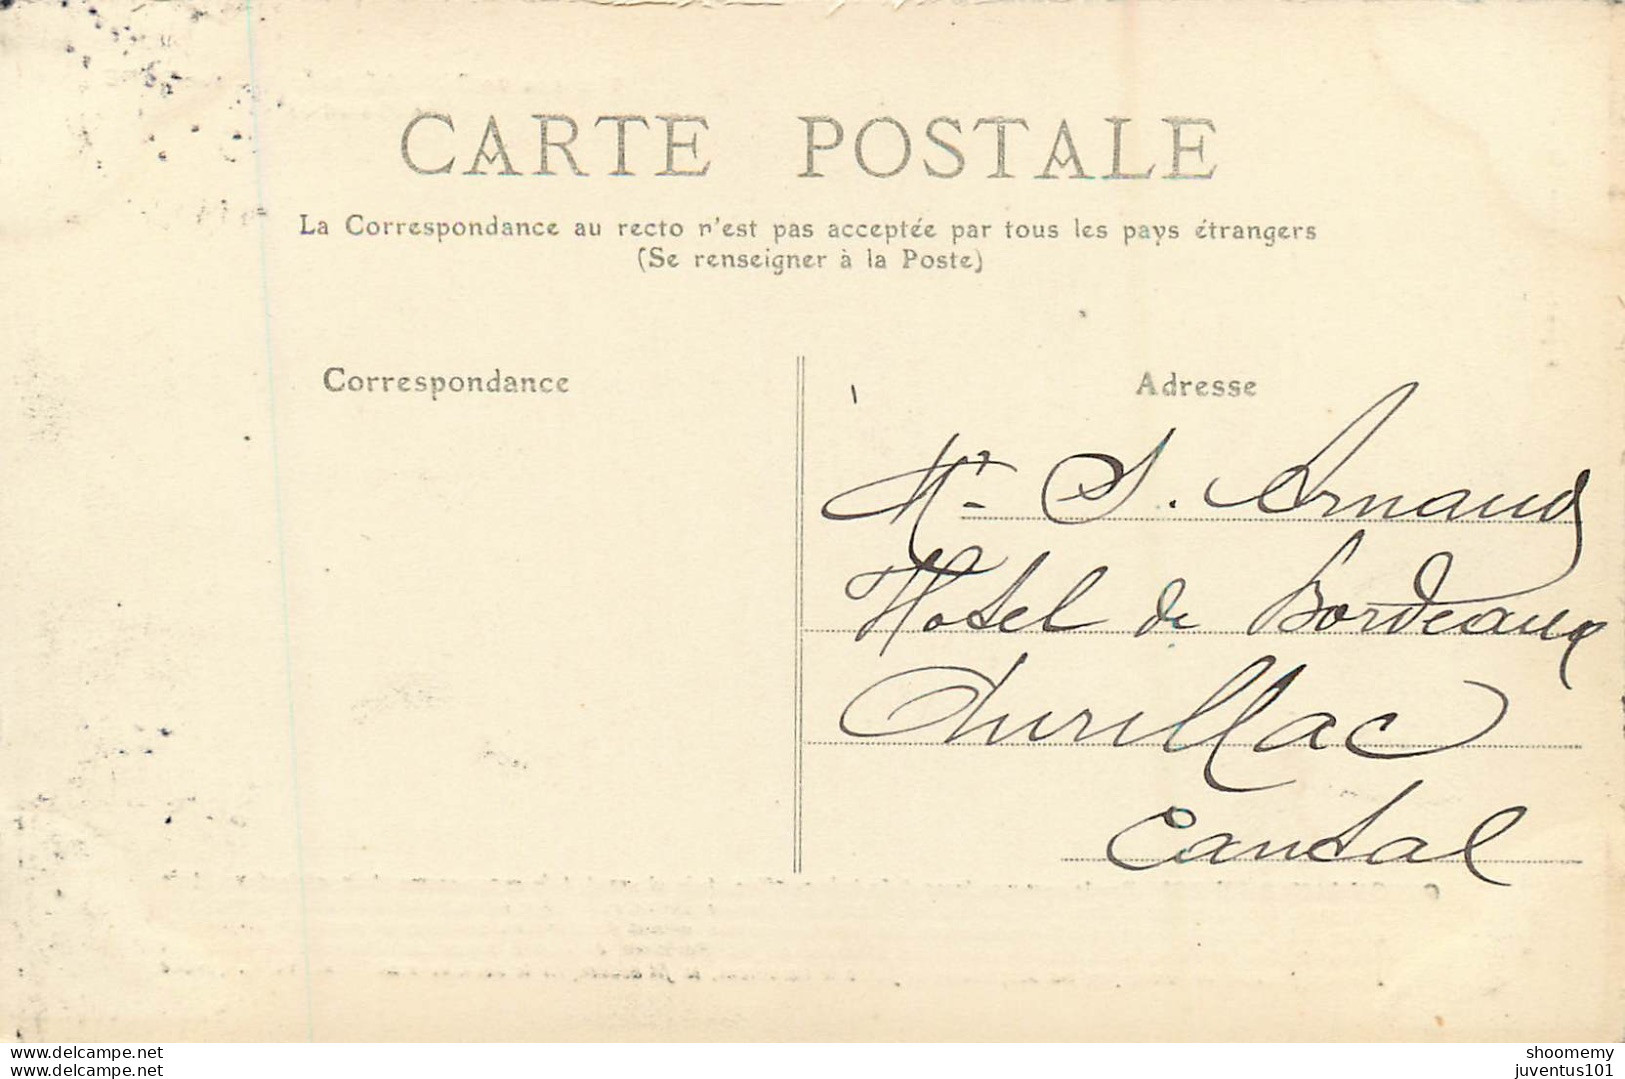 CARTE POSTALE
La Correspondance au recto n'est pas acceptée par tous les pays étrangers
(Se renseigner à la Poste)
Correspondance
Adresse
Mr. S. Arnaud
Hotel de Bordeaux
Aurillac
Cantal
www.delcampe.net
www.delcampe.net
shoomemy
juventus101